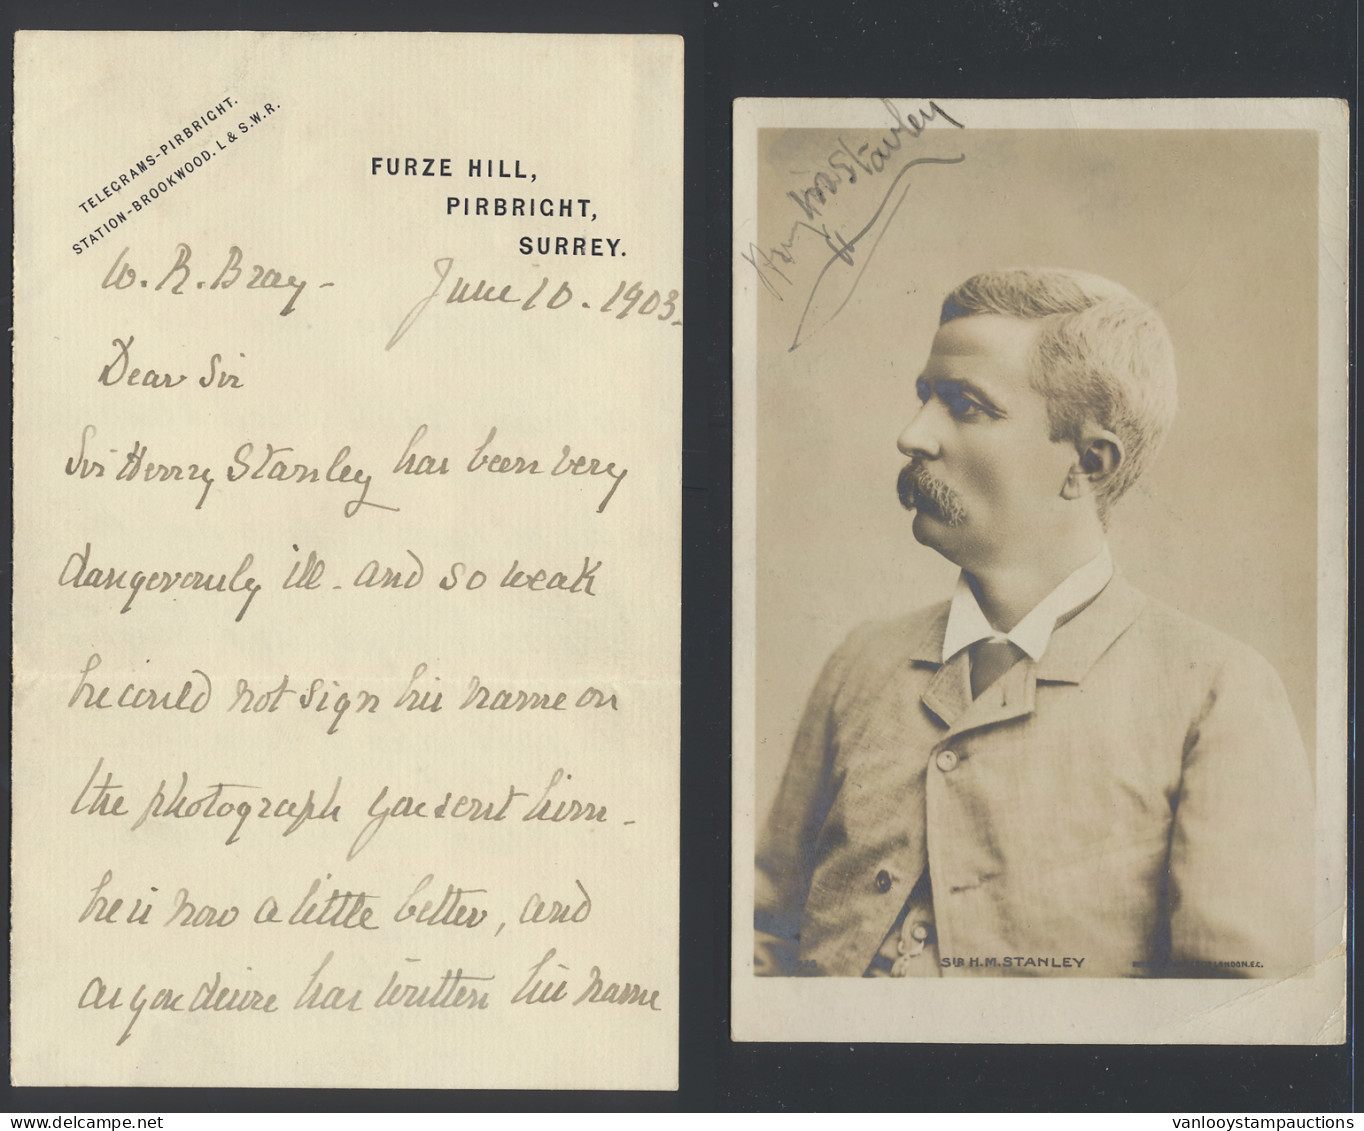 TELEGRAMS-PIRBRIGHT.
STATION-BROOKWOOD. L & S.W.R.
FURZE HILL,
PIRBRIGHT,
SURREY.
W. R. Bray - June 10. 1903.
Dear Sir
Sir Henry Stanley has been very
dangerously ill - and so weak
he could not sign his name on
the photograph you sent him -
he is now a little better, and
as you desire has written his name
Henry M Stanley
SIR H.M. STANLEY
LONDON. E.C.
vanlooystampauctions